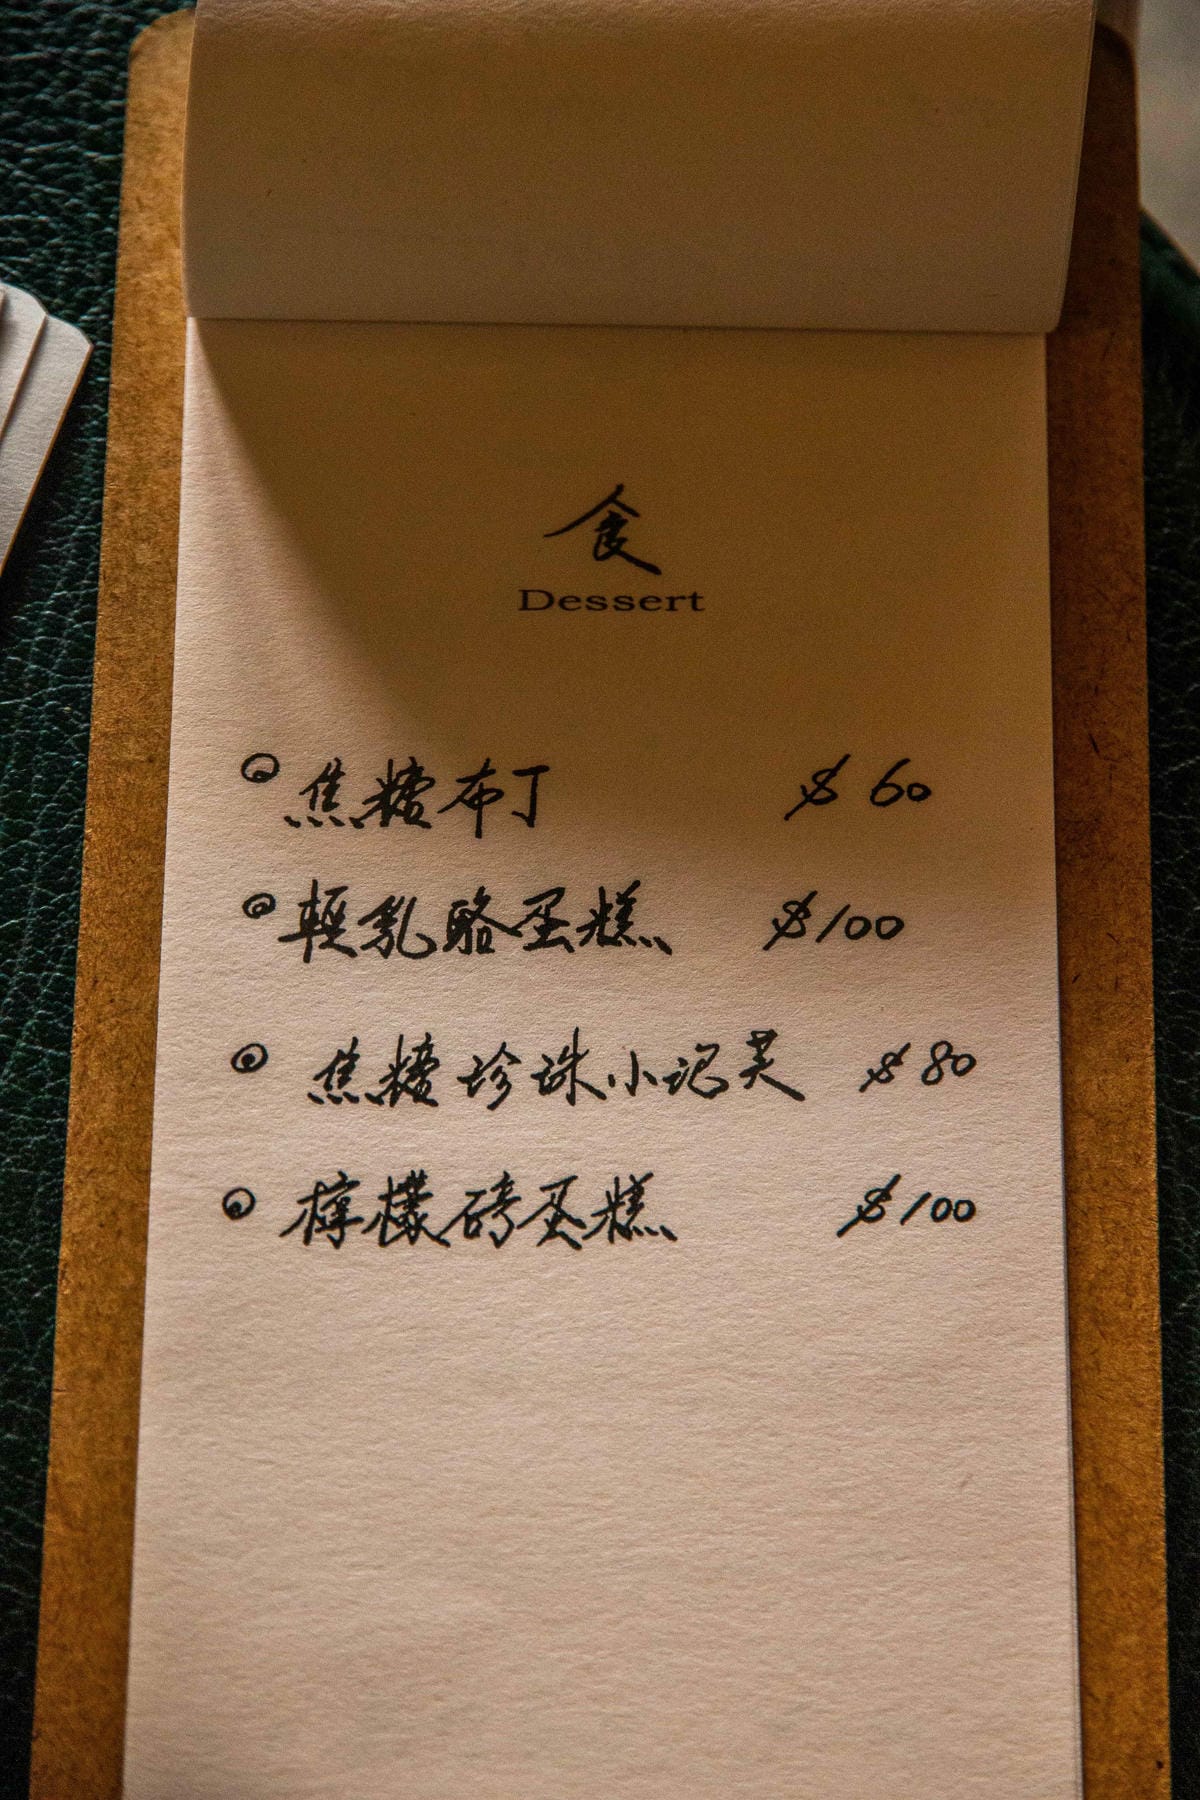 食
Dessert
焦糖布丁 $60
輕乳酪蛋糕 $100
焦糖珍珠小泡芙 $80
檸檬磅蛋糕 $100